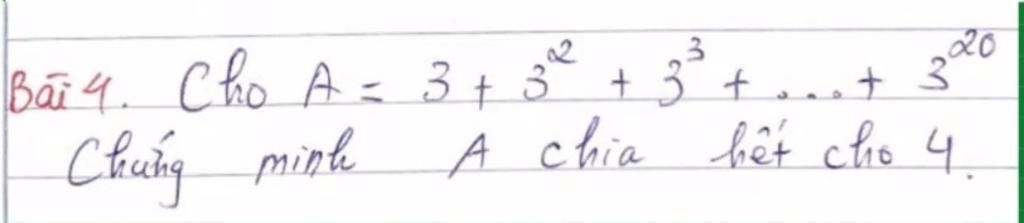 Bài 4. Cho A = 3 + 3² + 3³ + .... + 3²⁰
Chứng minh A chia hết cho 4.